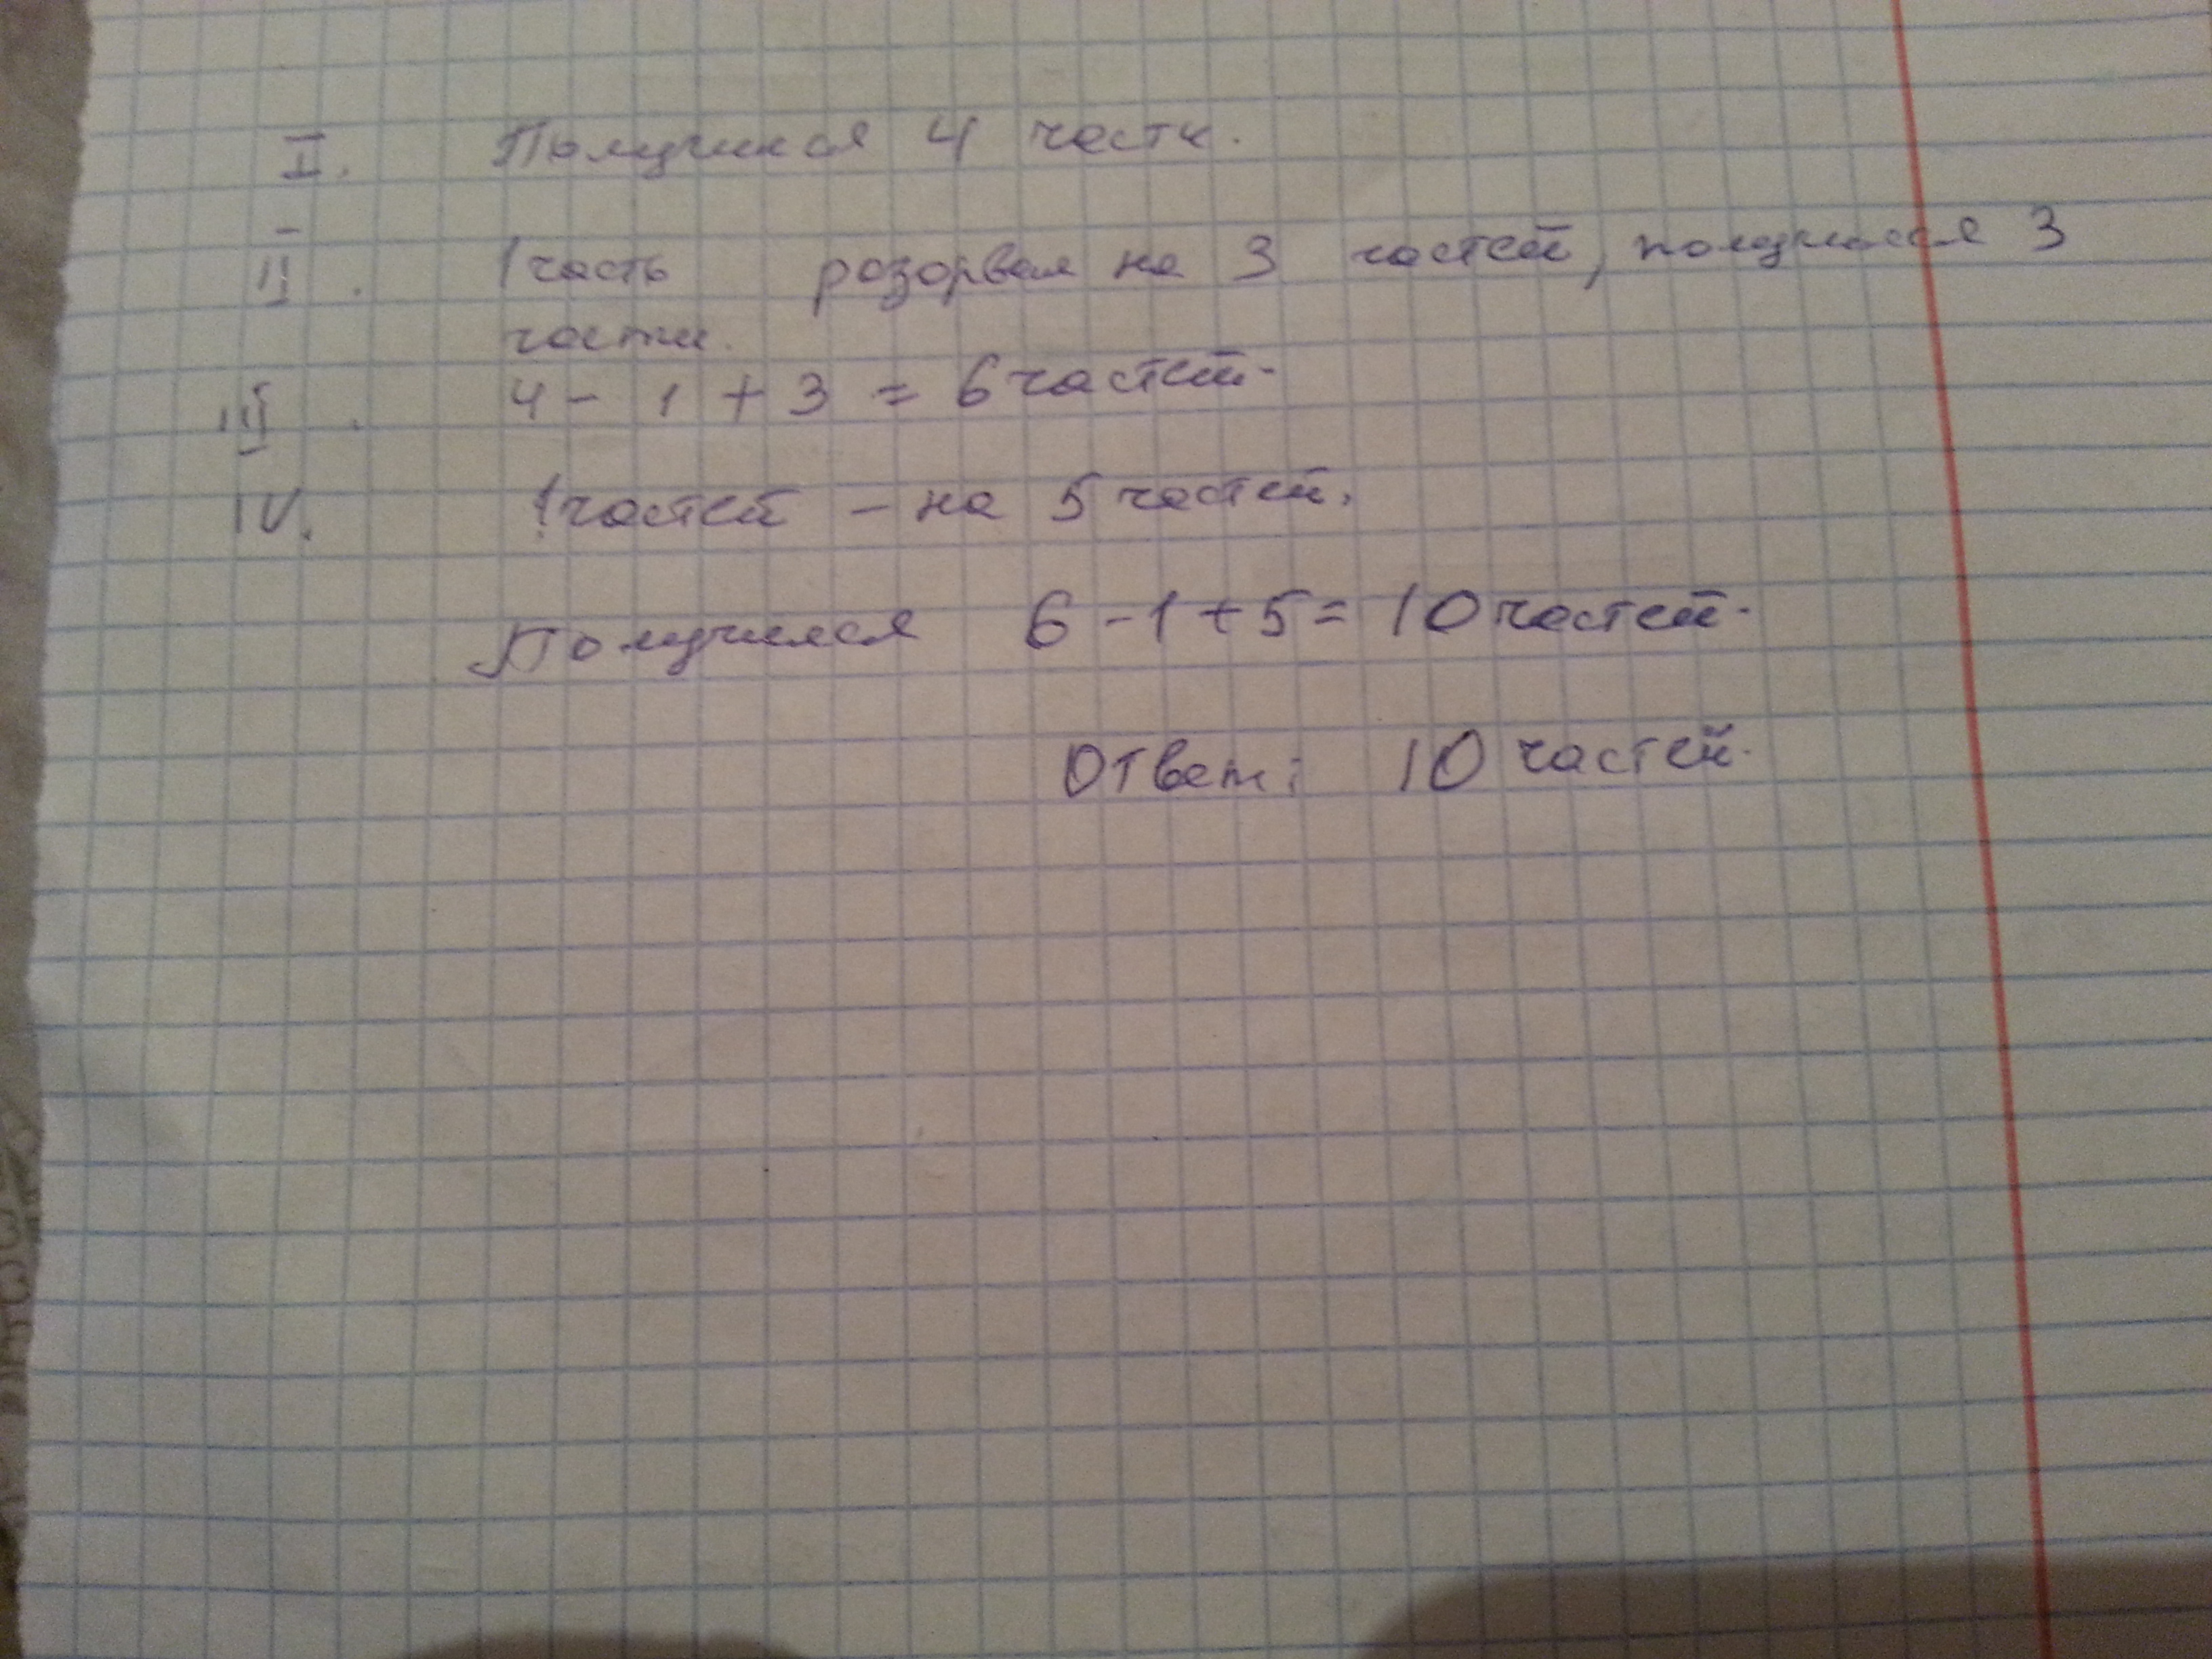 I. Получился 4 части.
II. 1 часть розорвал на 3 частей, получился 3
части.
III. 4 - 1 + 3 = 6 частей.
IV. 1 частей - на 5 частей.
Получился 6 - 1 + 5 = 10 частей.
Ответ: 10 частей.